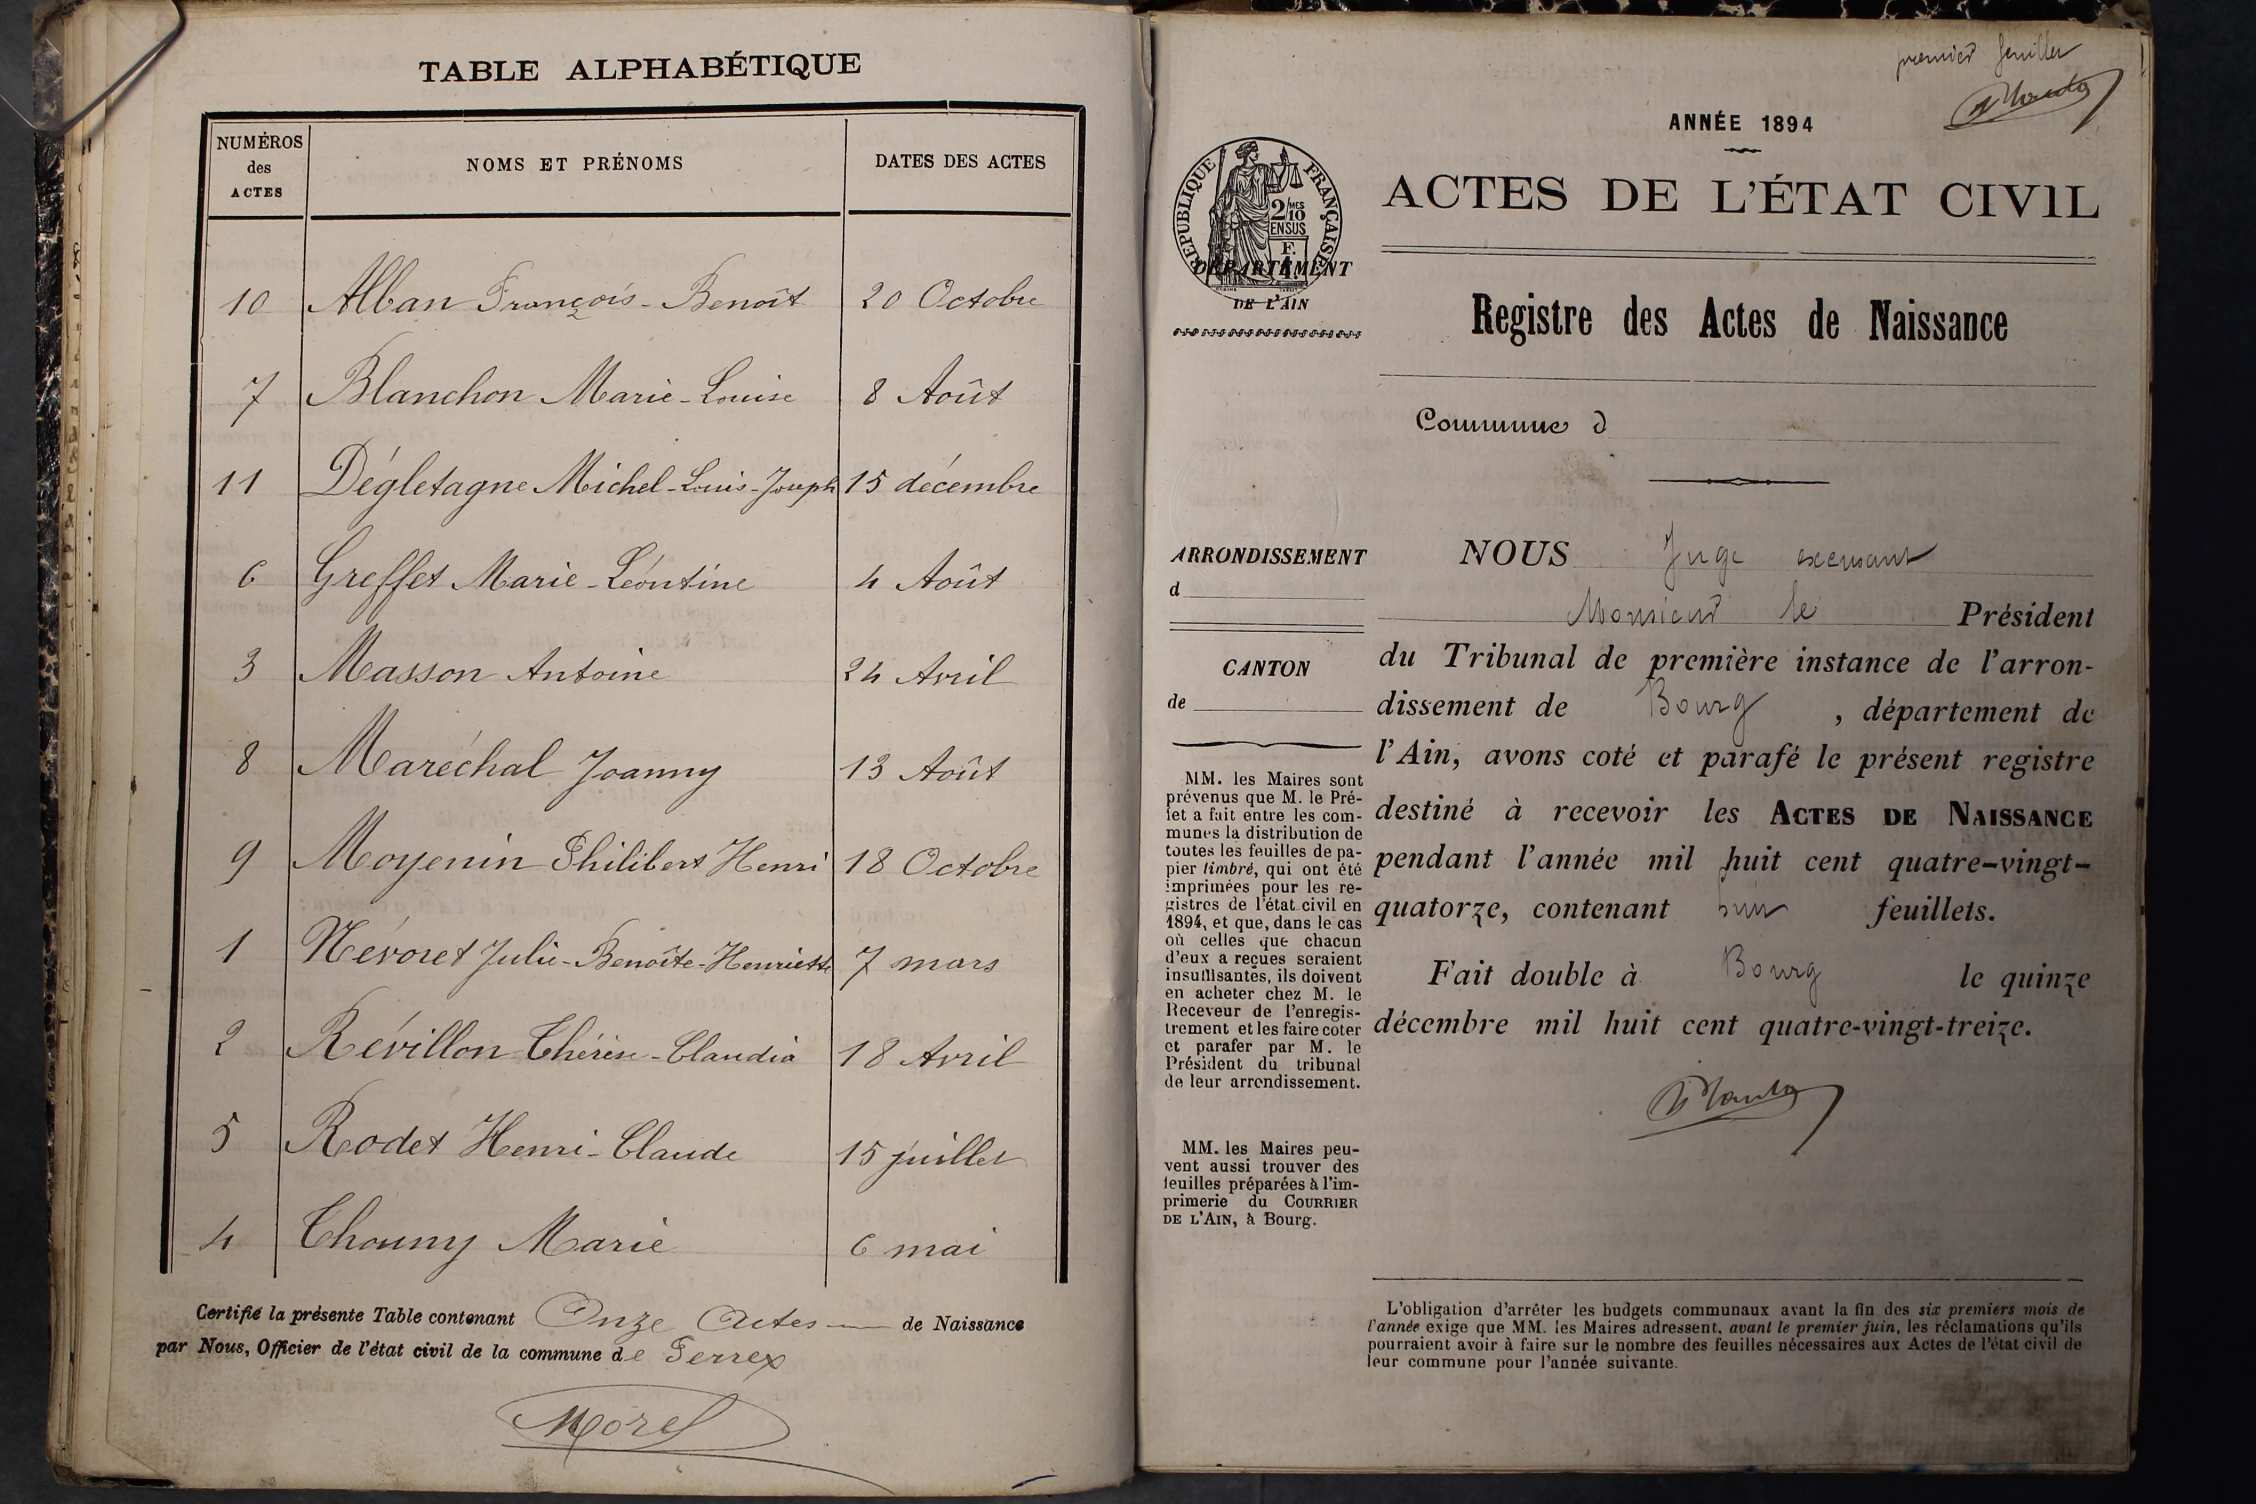 TABLE ALPHABÉTIQUE
NUMÉROS des ACTES NOMS ET PRÉNOMS DATES DES ACTES
10 Alban François-Benoît 20 Octobre
7 Blanchon Marie-Louise 8 Août
11 Dégletagne Michel-Louis-Joseph 15 décembre
6 Greffet Marie-Léontine 4 Août
3 Masson Antoine 24 Avril
8 Maréchal Joanny 13 Août
9 Moyenin Philibert Henri 18 Octobre
1 Névoret Julie-Benoîte-Henriette 7 mars
2 Révillon Thérèse-Claudia 18 Avril
5 Rodet Henri-Claude 15 juillet
4 Thouny Marie 6 mai
Certifié la présente Table contenant Onze Actes de Naissance
par Nous, Officier de l'état civil de la commune de Perrex
Morel
premier feuillet
ANNÉE 1894
ACTES DE L'ÉTAT CIVIL
RÉPUBLIQUE FRANÇAISE
2/10 MES
EN SUS
F.
DÉPARTEMENT
DE L'AIN
Registre des Actes de Naissance
Commune d
ARRONDISSEMENT
d
CANTON
de
MM. les Maires sont
prévenus que M. le Pré-
fet a fait entre les com-
munes la distribution de
toutes les feuilles de pa-
pier timbré, qui ont été
imprimées pour les re-
gistres de l'état civil en
1894, et que, dans le cas
où celles que chacun
d'eux a reçues seraient
insuffisantes, ils doivent
en acheter chez M. le
Receveur de l'enregis-
trement et les faire coter
et parafer par M. le
Président du tribunal
de leur arrondissement.
MM. les Maires peu-
vent aussi trouver des
feuilles préparées à l'im-
primerie du COURRIER
DE L'AIN, à Bourg.
NOUS Juge exerçant
Monsieur le Président
du Tribunal de première instance de l'arron-
dissement de Bourg, département de
l'Ain, avons coté et parafé le présent registre
destiné à recevoir les ACTES DE NAISSANCE
pendant l'année mil huit cent quatre-vingt-
quatorze, contenant huit feuillets.
Fait double à Bourg le quinze
décembre mil huit cent quatre-vingt-treize.
L'obligation d'arrêter les budgets communaux avant la fin des six premiers mois de
l'année exige que MM. les Maires adressent, avant le premier juin, les réclamations qu'ils
pourraient avoir à faire sur le nombre des feuilles nécessaires aux Actes de l'état civil de
leur commune pour l'année suivante.